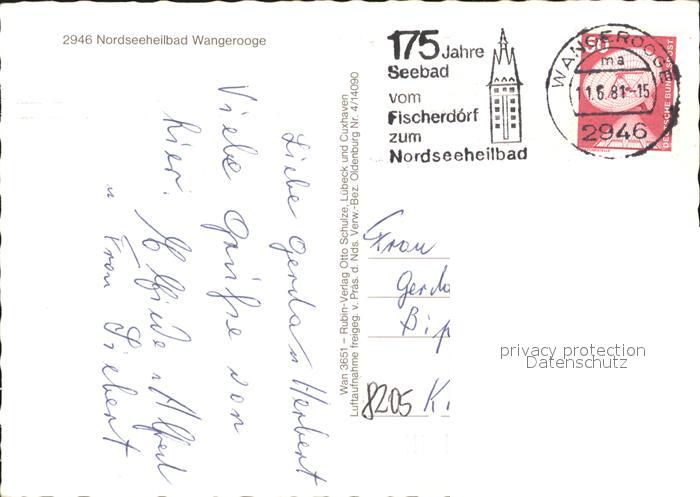 2946 Nordseeheilbad Wangerooge
175 Jahre
Seebad
vom
Fischerdorf
zum
Nordseeheilbad
WANGEROOGE
ma
11.6.81-15
2946
90
DEUTSCHE BUNDESPOST
Liebe Gerda u Herbert
Viele Grüße von
hier.
Elfriede u Alfred
u Frau Siebert
Wan 3651 – Rubin-Verlag Otto Schulze, Lübeck und Cuxhaven
Luftaufnahme freigeg. v. Präs. d. Nds. Verw.-Bez. Oldenburg Nr. 4/14090
Frau
Gerda
8205 Ki
privacy protection
Datenschutz